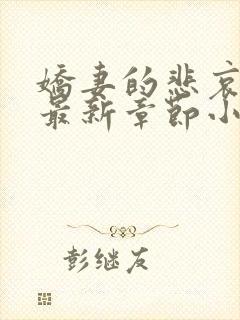 娇妻的悲哀
最新章节小
彭继友